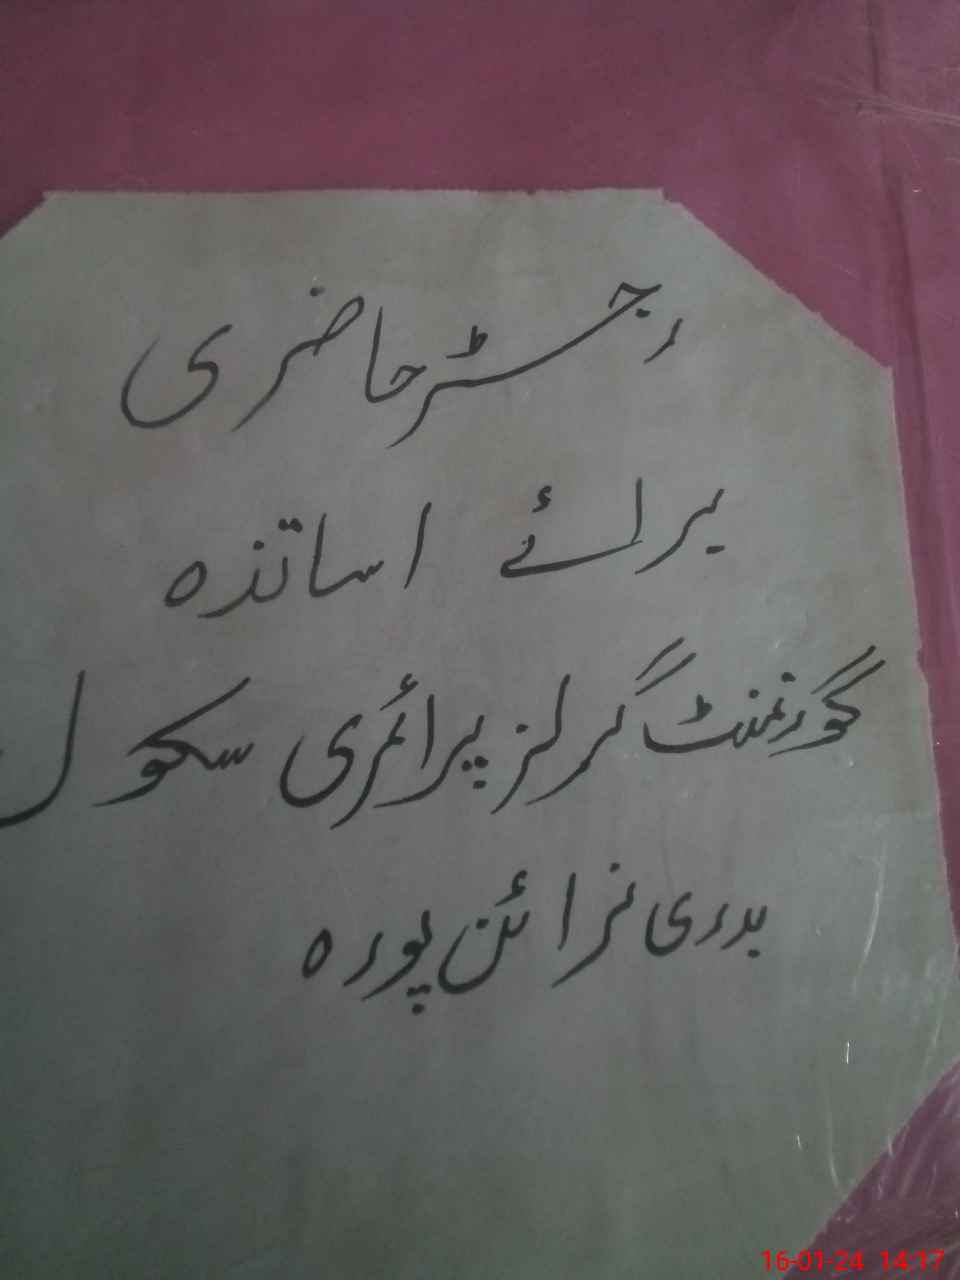 رجسٹر حاضری
برائے اساتذہ
گورنمنٹ گرلز پرائمری سکول
بدری نرائن پورہ
16-01-24 14:17